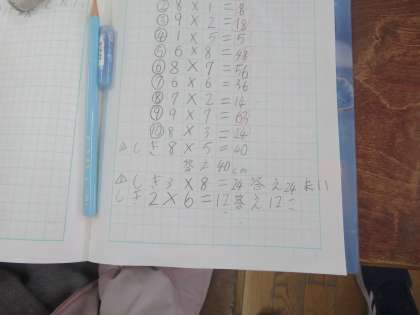 ② 8 × 1 = 8
③ 9 × 2 = 18
④ 1 × 5 = 5
⑤ 6 × 8 = 48
⑥ 8 × 7 = 56
⑦ 6 × 6 = 36
⑧ 7 × 2 = 14
⑨ 9 × 7 = 63
⑩ 8 × 3 = 24
しき 8 × 5 = 40
答え 40cm
しき 3 × 8 = 24 答え 24
しき 2 × 6 = 12 答え 12こ